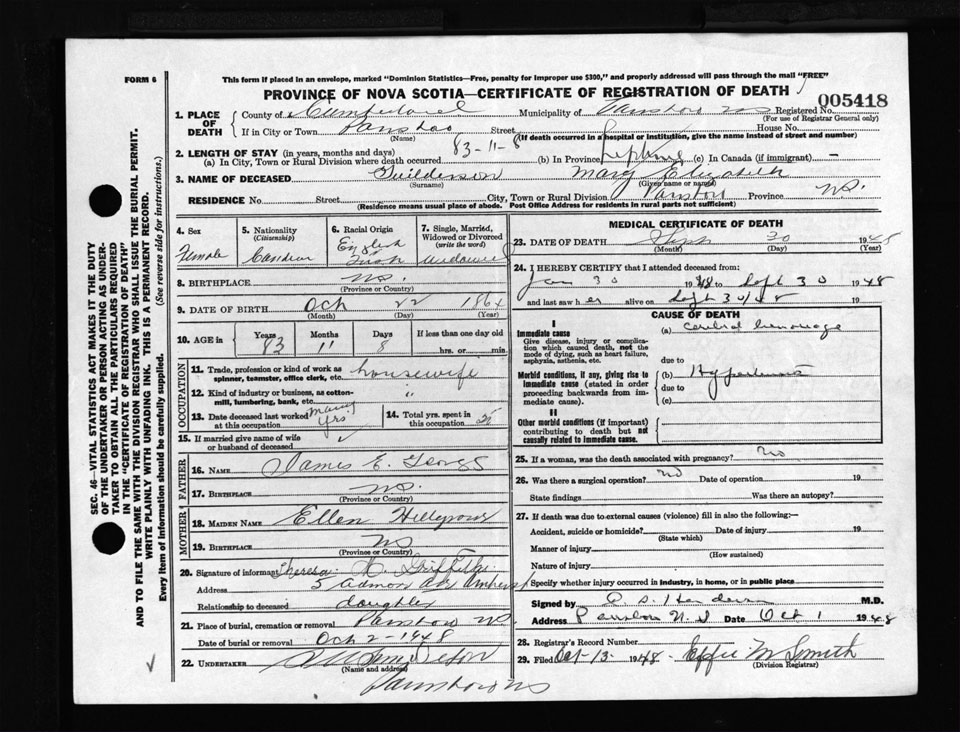 FORM 6
This form if placed in an envelope, marked "Dominion Statistics—Free, penalty for improper use $300," and properly addressed will pass through the mail "FREE"
PROVINCE OF NOVA SCOTIA—CERTIFICATE OF REGISTRATION OF DEATH
005418
1. PLACE OF DEATH
County of Cumberland Municipality of Parrsboro NS Registered No.
(For use of Registrar General only)
If in City or Town Parrsboro Street House No.
(Name) (If death occurred in a hospital or institution, give the name instead of street and number)
2. LENGTH OF STAY (in years, months and days) 83-11-8
(a) In City, Town or Rural Division where death occurred (b) In Province Lifetime (c) In Canada (if immigrant) —
3. NAME OF DECEASED Guilderson Mary Elizabeth
(Surname) (Given name or names)
RESIDENCE No. Street City, Town or Rural Division Parrsboro Province N.S.
(Residence means usual place of abode. Post Office Address for residents in rural parts not sufficient)
4. Sex
Female
5. Nationality
(Citizenship)
Canadian
6. Racial Origin
English
Irish
7. Single, Married, Widowed or Divorced
(write the word)
Widowed
8. BIRTHPLACE N.S.
(Province or Country)
9. DATE OF BIRTH Oct 22 1864
(Month) (Day)
10. AGE in
Years 83
Months 11
Days 8
If less than one day old
hrs. or min.
OCCUPATION
11. Trade, profession or kind of work as spinner, teamster, office clerk, etc. housewife
12. Kind of industry or business, as cotton-mill, lumbering, bank, etc. "
13. Date deceased last worked at this occupation many yrs
14. Total yrs. spent in this occupation
15. If married give name of wife or husband of deceased
FATHER
16. NAME James E. George
17. BIRTHPLACE N.S.
(Province or Country)
MOTHER
18. MAIDEN NAME Ellen
19. BIRTHPLACE NS
(Province or Country)
20. Signature of informant Theresa
Address 5 Ave Amherst
Relationship to deceased daughter
21. Place of burial, cremation or removal Parrsboro N.S.
Date of burial or removal Oct 2-1948
22. UNDERTAKER
(Name and address)
Parrsboro NS
MEDICAL CERTIFICATE OF DEATH
23. DATE OF DEATH Sept 30 1948
(Month) (Day)
24. I HEREBY CERTIFY that I attended deceased from:
Jan 30 1948 to Sept 30 1948
and last saw her alive on Sept 30/48 19
CAUSE OF DEATH
I
Immediate cause
Give disease, injury or complication which caused death, not the mode of dying, such as heart failure, asphyxia, asthenia, etc.
(a) cerebral hemorrhage
due to
Morbid conditions, if any, giving rise to immediate cause (stated in order proceeding backwards from immediate cause).
(b) Hypertension
due to
(c)
II
Other morbid conditions (if important) contributing to death but not causally related to immediate cause.
25. If a woman, was the death associated with pregnancy? No
26. Was there a surgical operation? No Date of operation 19
State findings Was there an autopsy?
27. If death was due to external causes (violence) fill in also the following:—
Accident, suicide or homicide? Date of injury 19
(State which)
Manner of injury
(How sustained)
Nature of injury
Specify whether injury occurred in industry, in home, or in public place
Signed by Henderson M.D.
Address Parrsboro N.S Date Oct 1 1948
28. Registrar's Record Number
29. Filed Oct-13- 1948- Effie M Smith
(Division Registrar)
SEC. 46—VITAL STATISTICS ACT MAKES IT THE DUTY
OF THE UNDERTAKER OR PERSON ACTING AS UNDER-
TAKER TO OBTAIN ALL THE PARTICULARS REQUIRED
IN THE "CERTIFICATE OF REGISTRATION OF DEATH"
AND TO FILE THE SAME WITH THE DIVISION REGISTRAR WHO SHALL ISSUE THE BURIAL PERMIT.
WRITE PLAINLY WITH UNFADING INK. THIS IS A PERMANENT RECORD.
Every item of information should be carefully supplied. (See reverse side for instructions.)